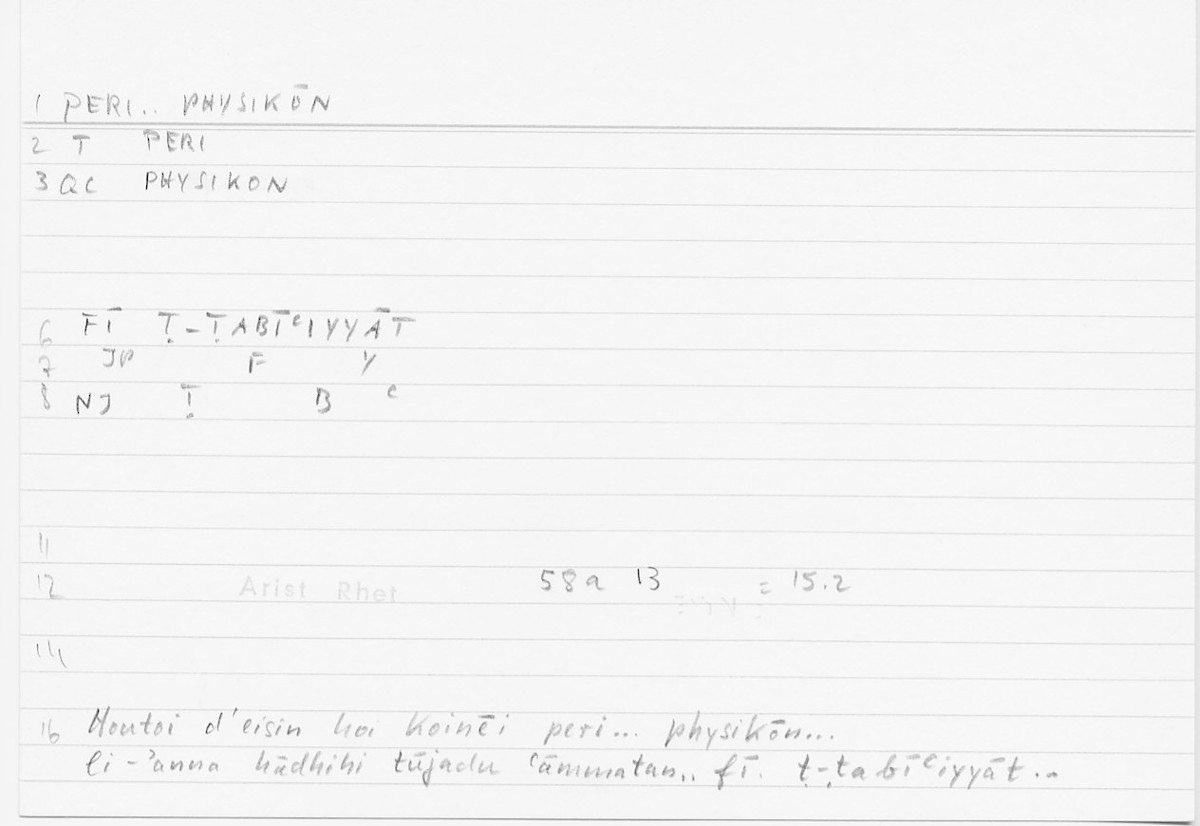 1 PERI.. PHYSIKŌN
2 T PERI
3 QC PHYSIKON
6 FĪ Ṭ-ṬABĪʿIYYĀT
7 JP F Y
8 NJ Ṭ B ʿ
11
12 Arist Rhet 58a 13 = 15.2
14
16 Houtoi d'eisin hoi koinēi peri... physikōn...
li-ʾanna hādhihi tūjadu ʿāmmatan.. fī. ṭ-ṭabīʿiyyāt..